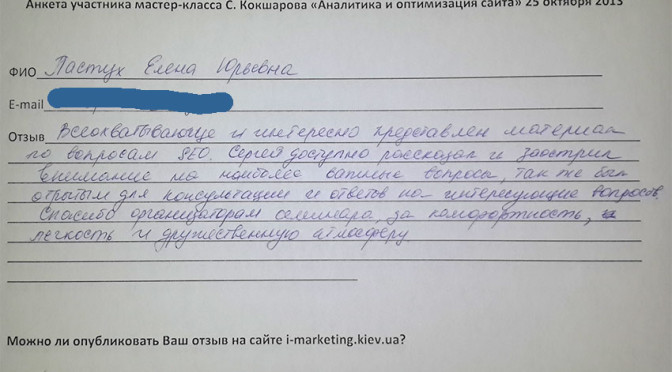 Анкета участника мастер-класса С. Кокшарова «Аналитика и оптимизация сайта» 25 октября 2013
ФИО Пастух Елена Юрьевна
E-mail
Отзыв Всеохватывающе и интересно представлен материал
по вопросам SEO. Сергей доступно рассказал и заострил
внимание на наиболее важные вопросы, так же был
отрытым для консультации и ответов на интересующие вопросов.
Спасибо организаторам семинара, за комфортность,
легкость и дружественную атмосферу.
Можно ли опубликовать Ваш отзыв на сайте i-marketing.kiev.ua?